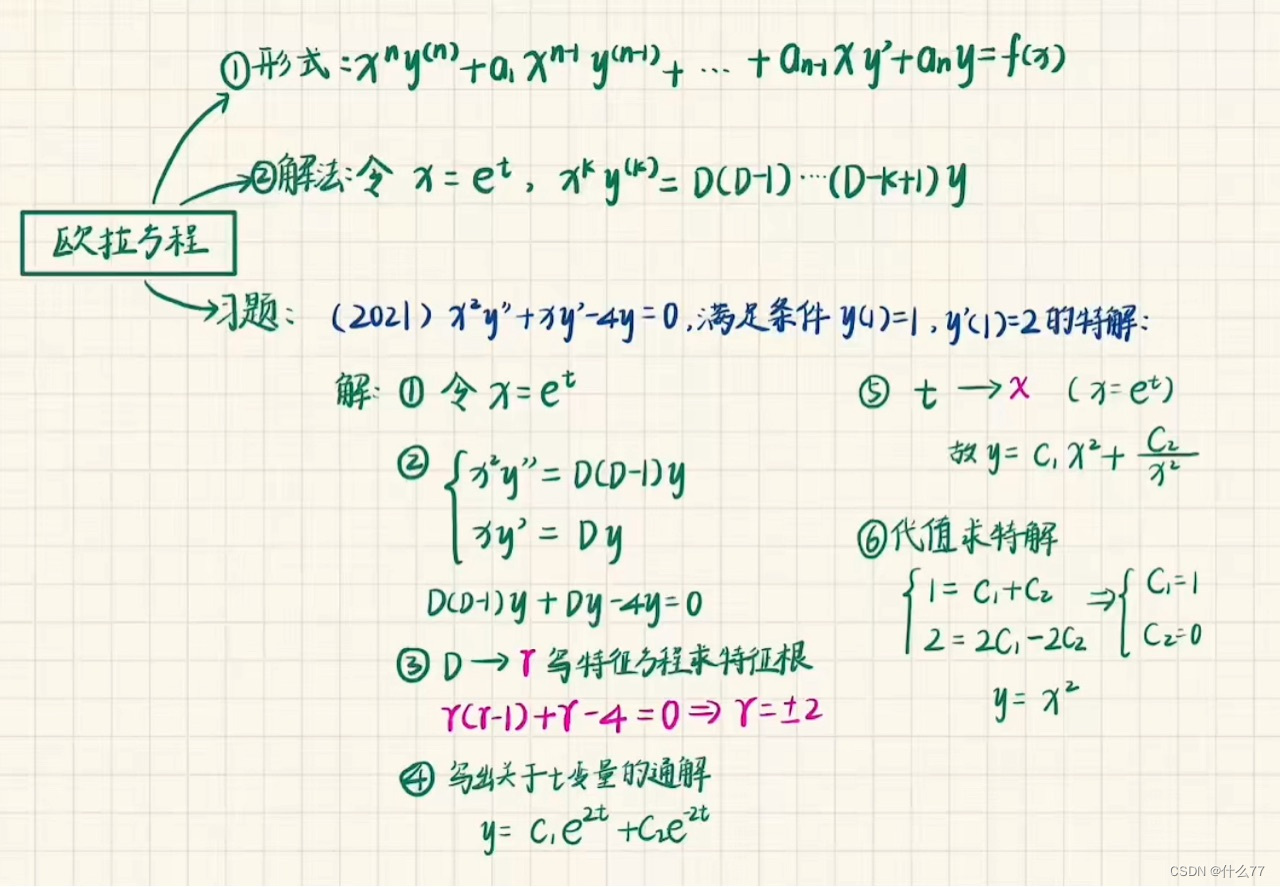 ①形式:xⁿy⁽ⁿ⁾+a₁xⁿ⁻¹y⁽ⁿ⁻¹⁾+…+aₙ₋₁xy'+aₙy=f(x)
②解法:令 x=eᵗ, xᵏy⁽ᵏ⁾=D(D-1)…(D-k+1)y
欧拉方程
习题: (2021) x²y''+xy'-4y=0,满足条件 y(1)=1,y'(1)=2的特解:
解: ① 令 x=eᵗ
② { x²y''=D(D-1)y
xy'=Dy
D(D-1)y+Dy-4y=0
③ D→r 写特征方程求特征根
r(r-1)+r-4=0⇒r=±2
④ 写出关于t变量的通解
y=C₁e²ᵗ+C₂e⁻²ᵗ
⑤ t→x (x=eᵗ)
故 y=C₁x²+C₂/x²
⑥代值求特解
{ 1=C₁+C₂ ⇒ { C₁=1
2=2C₁-2C₂ C₂=0
y=x²
CSDN @什么77